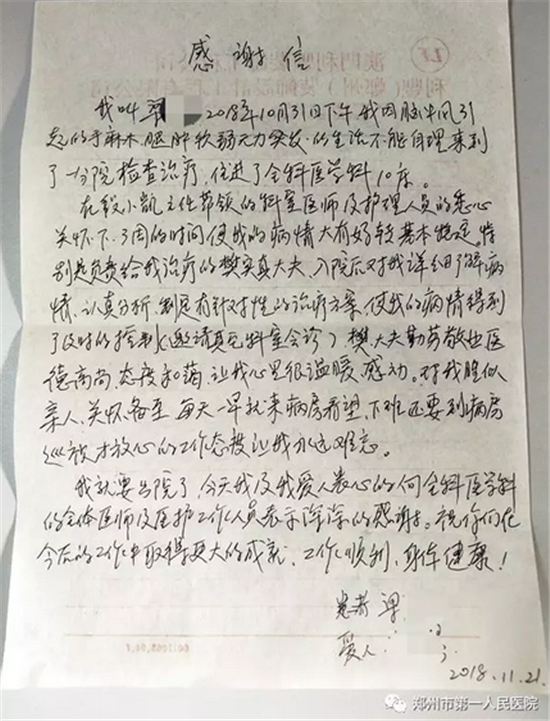 感谢信
我叫 2018年10月31日下午我因脑中风引
起的手麻木腿脚软弱无力突发的生活不能自理来到
了一分院检查治疗,住进了全科医学科10床。
在段小凯主任带领的科室医师及护理人员的悉心
关怀下,3周的时间使我的病情大有好转基本稳定。特
别是负责给我治疗的樊实真大夫,入院后对我详细了解病
情、认真分析、制定有针对性的治疗方案,使我的病情得到
了及时的控制(邀请其它科室会诊)樊大夫勤劳敬业医
德高尚态度和蔼,让我心里很温暖感动。对我胜似
亲人、关怀备至,每天一早就来病房看望,下班还要到病房
巡视才放心的工作态度让我永远难忘。
我就要出院了,今天我及我爱人衷心的向全科医学科
的全体医师及医护工作人员表示深深的感谢。祝你们在
今后的工作中取得更大的成就,工作顺利,身体健康!
患者
爱人:
2018.11.21.
郑州市第一人民医院